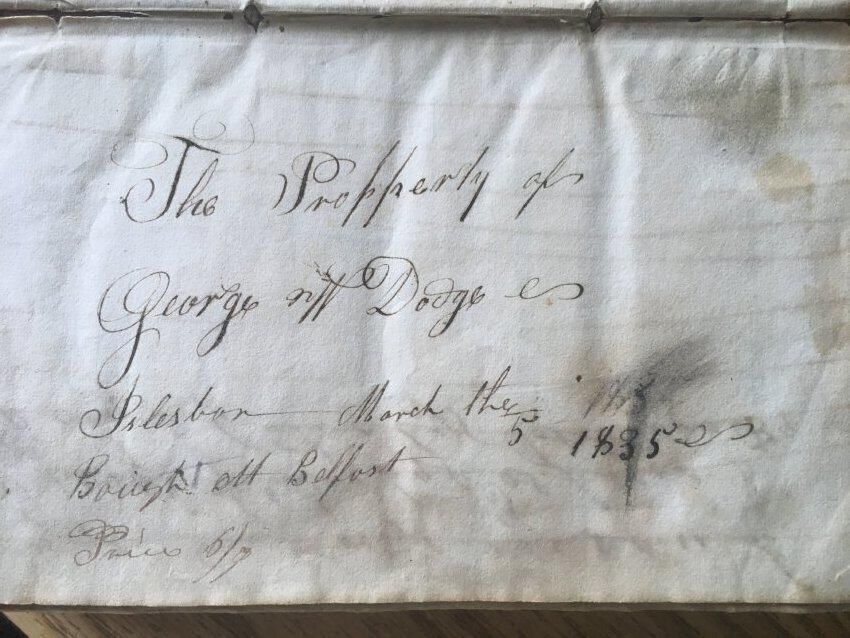 The Propperty of
George W Dodge
Islesbor March the 5 1835
Bought att Belfast
Price 6/